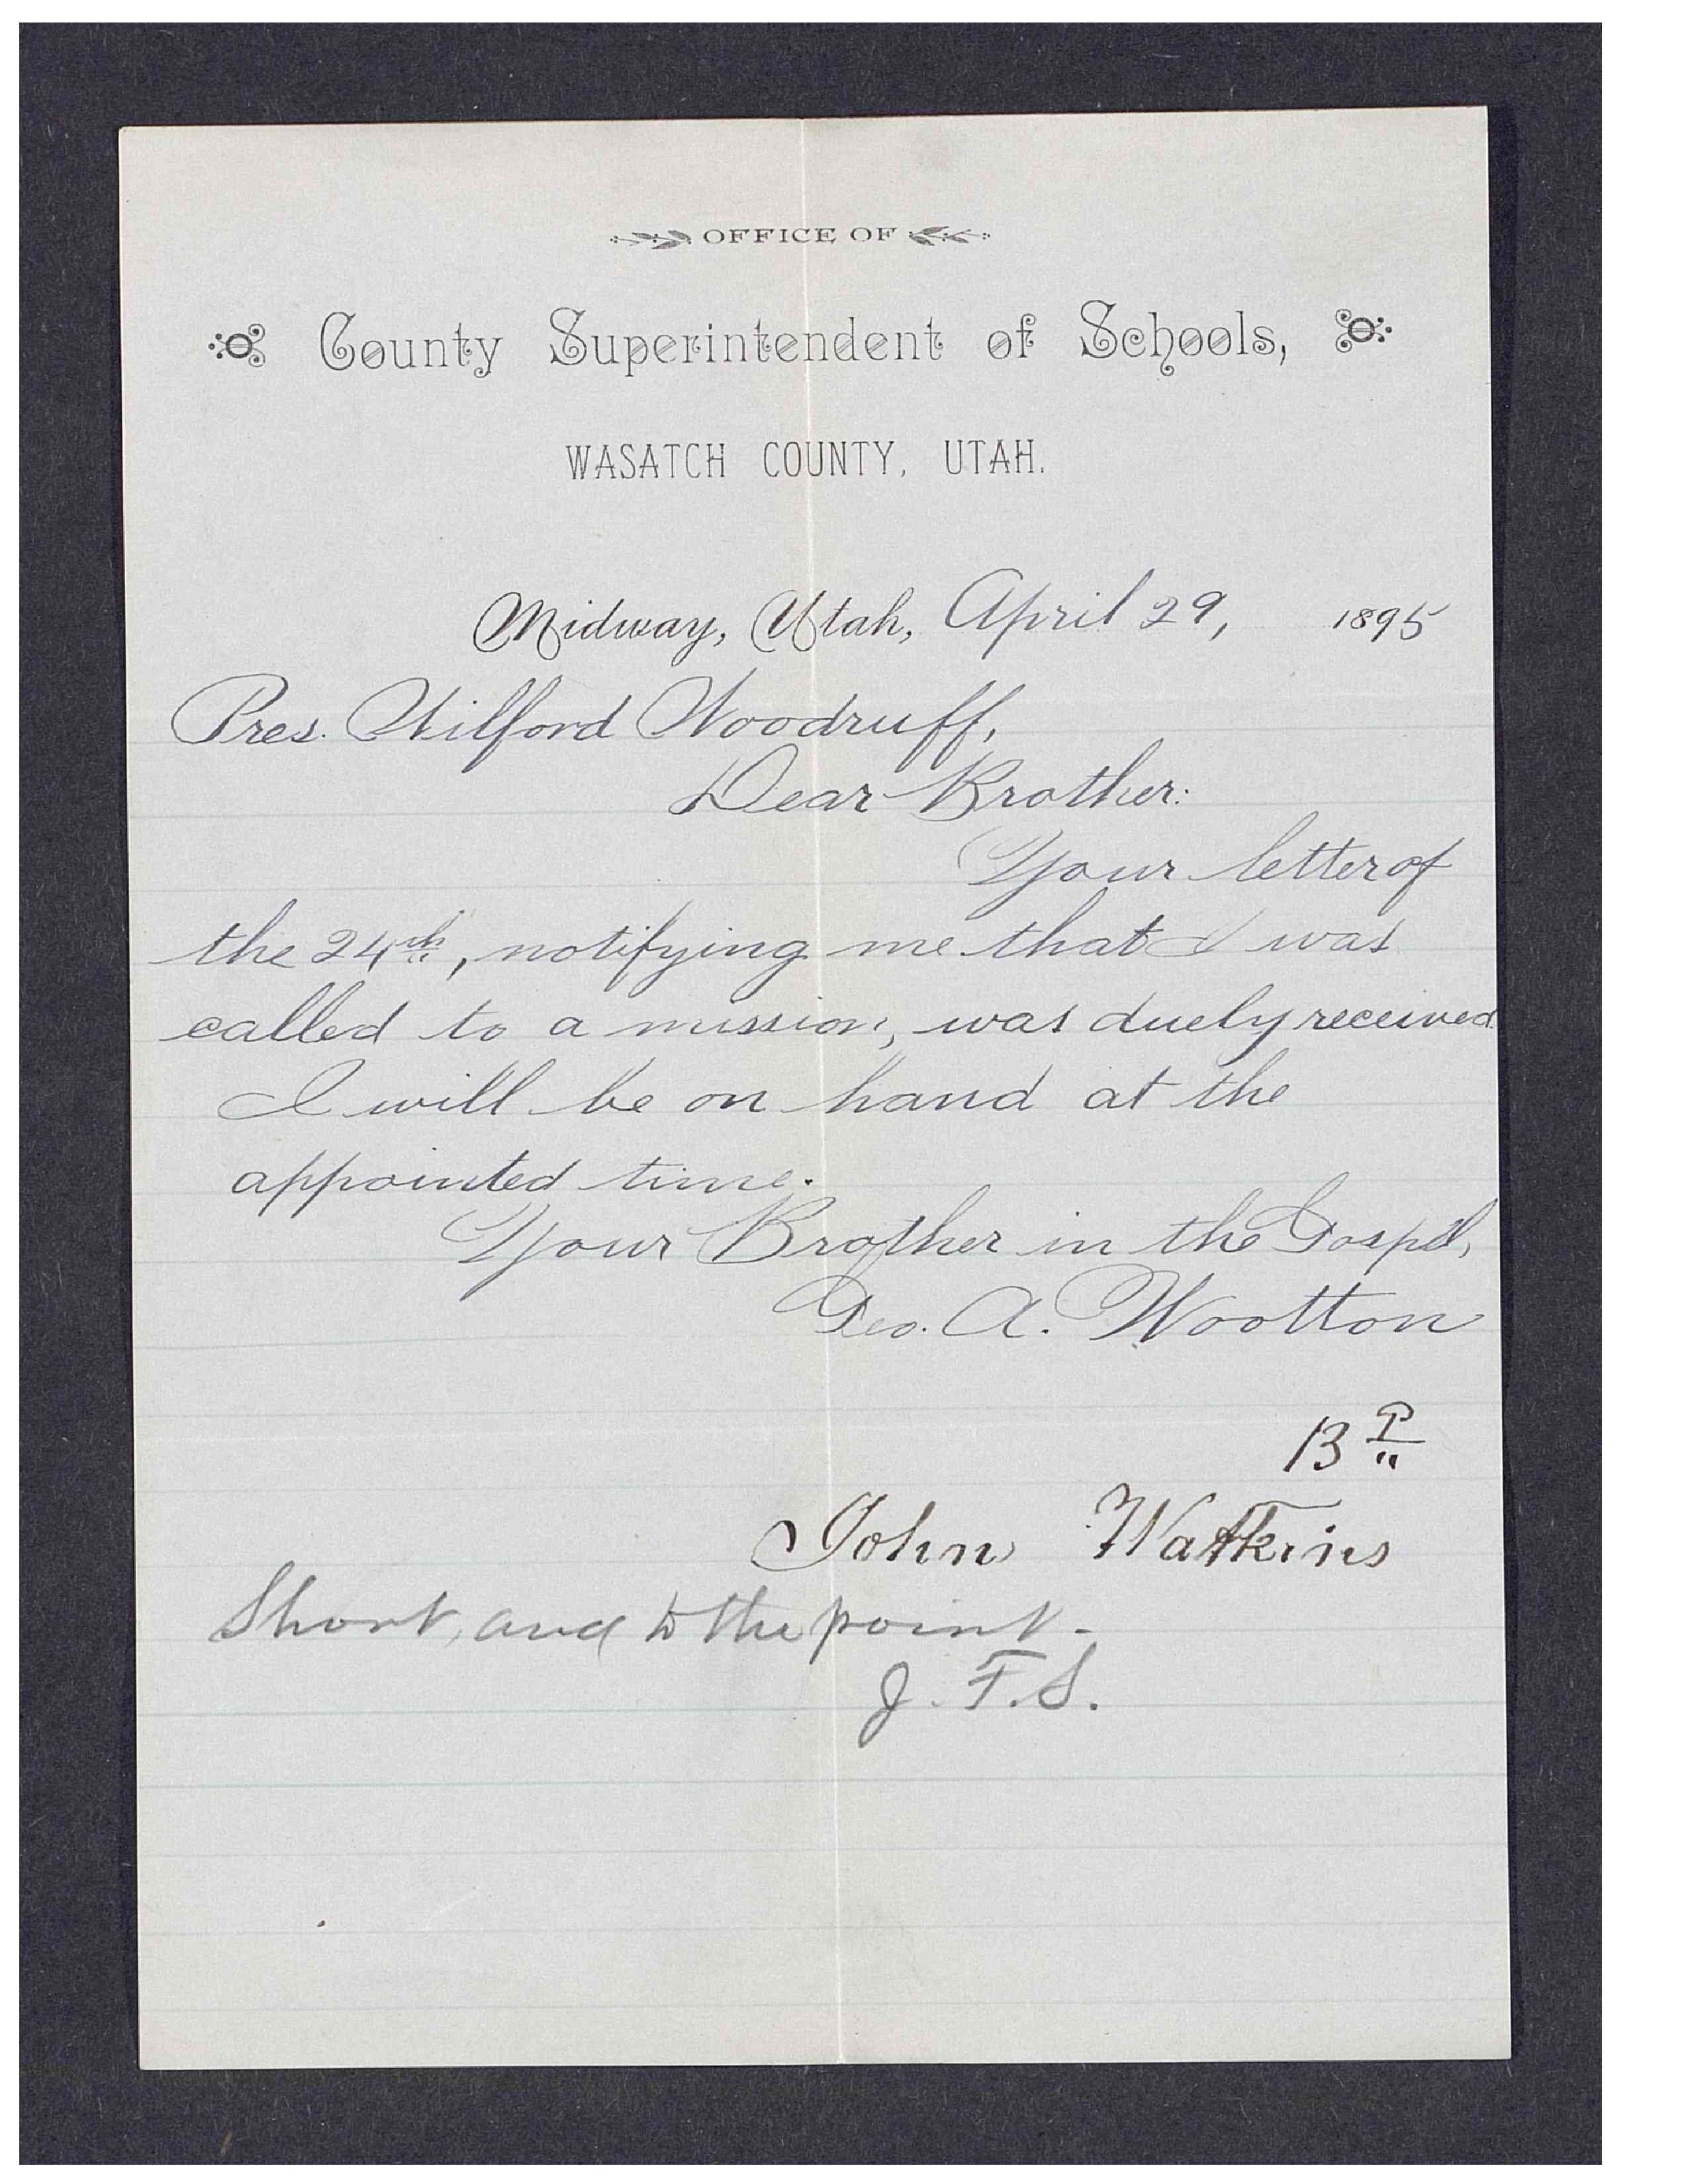 OFFICE OF
County Superintendent of Schools,
WASATCH COUNTY, UTAH.
Midway, Utah, April 29, 1895
Pres. Wilford Woodruff,
Dear Brother:
Your letter of
the 24th, notifying me that I was
called to a mission, was duely received
I will be on hand at the
appointed time.
Your Brother in the Gospel,
Geo. A. Wootton
BP
John Watkins
Short, and to the point -
J. F. S.